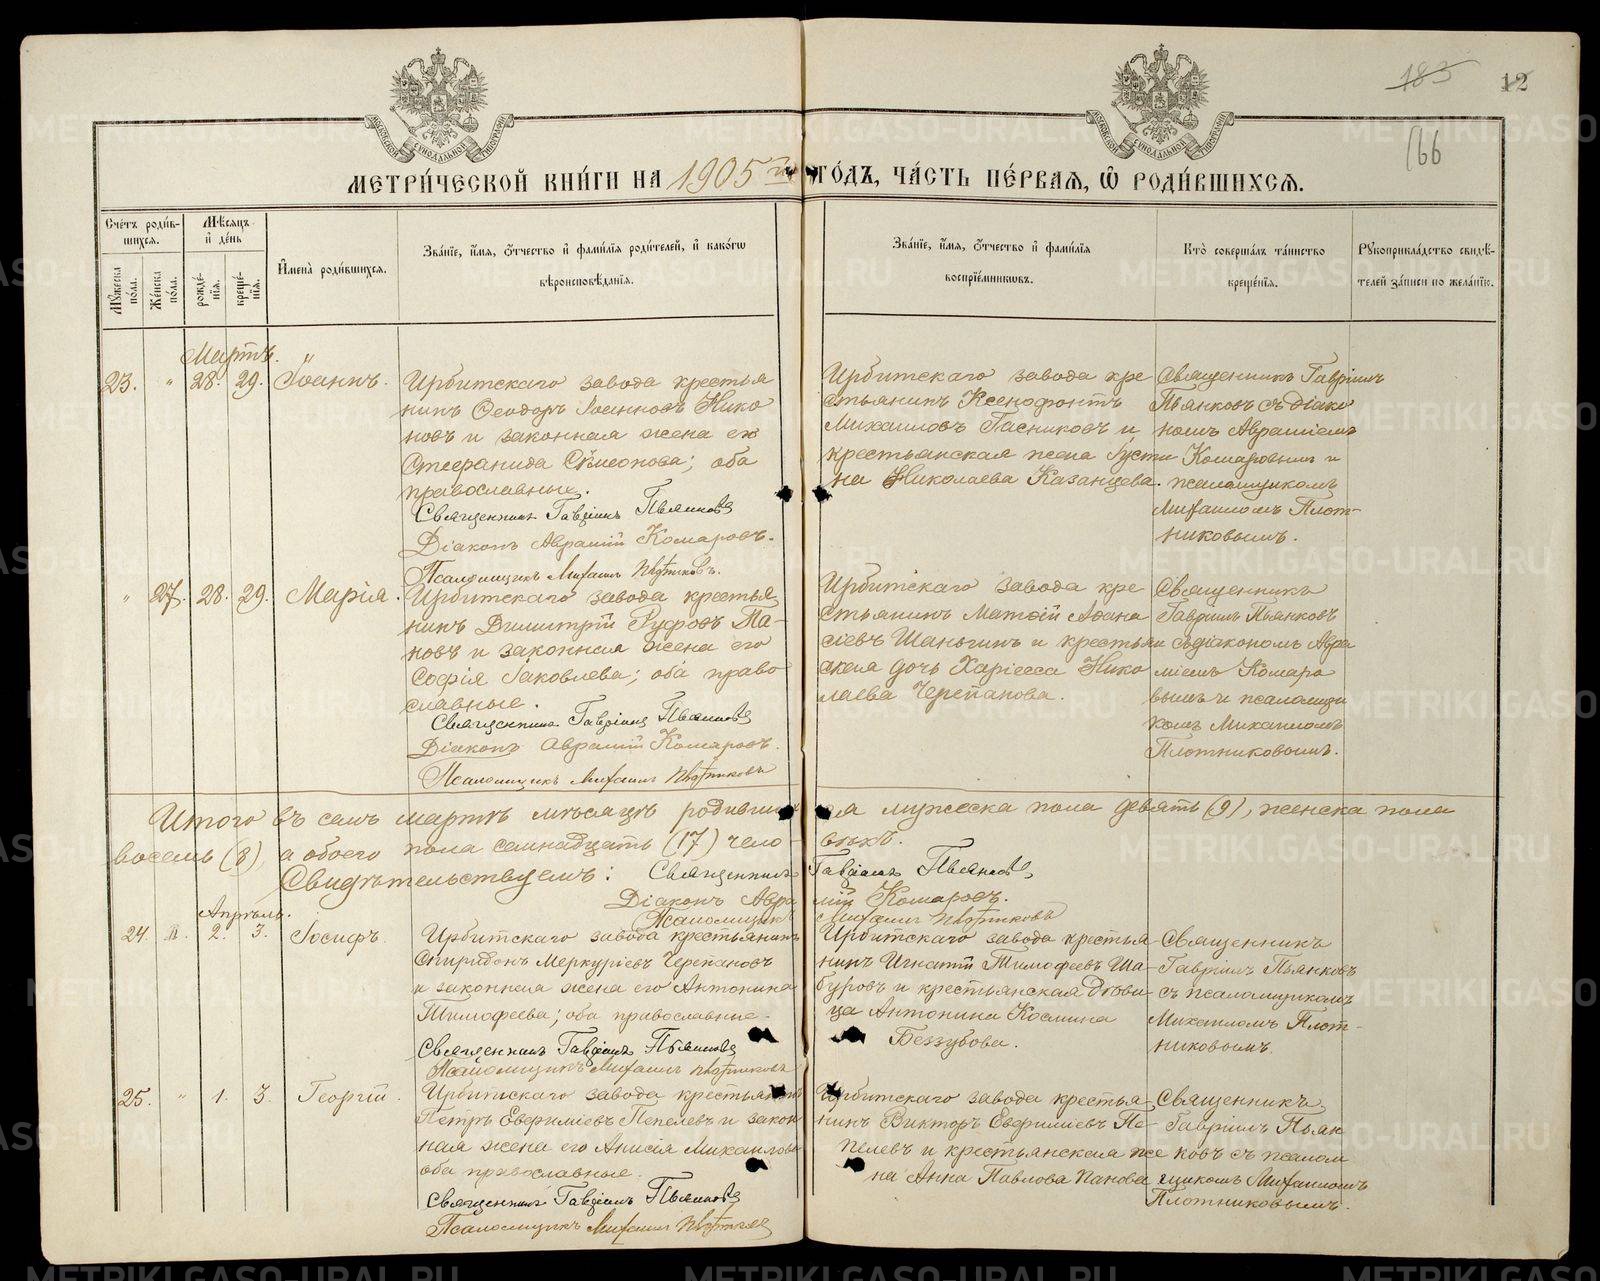 183 12
166
МОСКОВСКОЙ СѴНОДАЛЬНОЙ ТИПОГРАФІИ
МОСКОВСКОЙ СѴНОДАЛЬНОЙ ТИПОГРАФІИ
МЕТРИ́ЧЕСКОЙ КНИ́ГИ НА 1905й ГО́ДЪ, ЧА́СТЬ ПЕ́РВАЯ, Ѡ РОДИ́ВШИХСЯ.
Сче́тъ роди́в-
шихся.
Мꙋ́жеска по́ла.
Же́нска по́ла.
Мѣ́сяцъ
и҆ де́нь
рожде́-
нїя.
креще́-
нїя.
И҆мена̀ роди́вшихся.
Зва́нїе, и҆́мя, ѻ҆́тчество и҆ фами́лїя роди́телей, и҆ како́гѡ
вѣроисповѣ́данїя.
Зва́нїе, и҆́мя, ѻ҆́тчество и҆ фами́лїя
воспрїе́мникѡвъ.
Кто̀ соверша́лъ та́инство
креще́нїя.
Рꙋкоприкла́дство свидѣ́-
телей за́писи по жела́нїю.
Мартъ.
23. " 28. 29. Іоаннъ.
Ирбитскаго завода крестья
нинъ Ѳеодоръ Іоанновъ Нико
новъ и законная жена его
Стефанида Симеонова; оба
православные.
Священникъ Гавріилъ Пьянковъ
Діаконъ Аврамій Комаровъ.
Псаломщикъ Михаилъ Плотниковъ.
Ирбитскаго завода кре
стьянинъ Ксенофонтъ
Михаиловъ Гасниковъ и
крестьянская жена Іусти
на Николаева Казанцева.
Священникъ Гавріилъ
Пьянковъ съ діако
номъ Авраміемъ
Комаровымъ и
псаломщикомъ
Михаиломъ Плот-
никовымъ.
" 27. 28. 29. Марія.
Ирбитскаго завода крестья
нинъ Димитрій Руфовъ Па-
новъ и законная жена его
Софія Іаковлева; оба право
славные.
Священникъ Гавріилъ Пьянковъ
Діаконъ Аврамій Комаровъ.
Псаломщикъ Михаилъ Плотниковъ
Ирбитскаго завода кре
стьянинъ Матѳій Аѳана
сіевъ Шаньгинъ и крестьян
ская дочь Харіесса Нико
лаева Черепанова.
Священникъ
Гавріилъ Пьянковъ
съ діакономъ Авра
міемъ Комаро
вымъ и псаломщи
комъ Михаиломъ
Плотниковымъ.
Итого въ семъ мартѣ мѣсяцѣ родившихся мужеска пола девять (9), женска пола
восемь (8), а обоего пола семнадцать (17) чело-вѣкъ.
Свидѣтельствуемъ: Священникъ Гавріилъ Пьянковъ,
Діаконъ Аврамій Комаровъ.
Псаломщикъ Михаилъ Плотниковъ
Апрѣль.
24. " 2. 3. Іосифъ.
Ирбитскаго завода крестьянинъ
Спиридонъ Меркуріевъ Черепановъ
и законная жена его Антонина
Тимофеева; оба православные.
Священникъ Гавріилъ Пьянковъ
Псаломщикъ Михаилъ Плотниковъ
Ирбитскаго завода крестья
нинъ Игнатій Тимофеевъ Ша-
буровъ и крестьянская дѣви-
ца Антонина Космина
Беззубова.
Священникъ
Гавріилъ Пьянковъ
съ псаломщикомъ
Михаиломъ Плот-
никовымъ.
25. " 1. 3. Георгій.
Ирбитскаго завода крестьянинъ
Петръ Евфиміевъ Пепелевъ и закон
ная жена его Анисія Михаилова
оба православные.
Священникъ Гавріилъ Пьянковъ
Псаломщикъ Михаилъ Плотниковъ
Ирбитскаго завода крестья
нинъ Викторъ Евфиміевъ Пе-
пелевъ и крестьянская же
на Анна Павлова Панова
Священникъ
Гавріилъ Пьян
ковъ съ псалом
щикомъ Михаиломъ
Плотниковымъ.